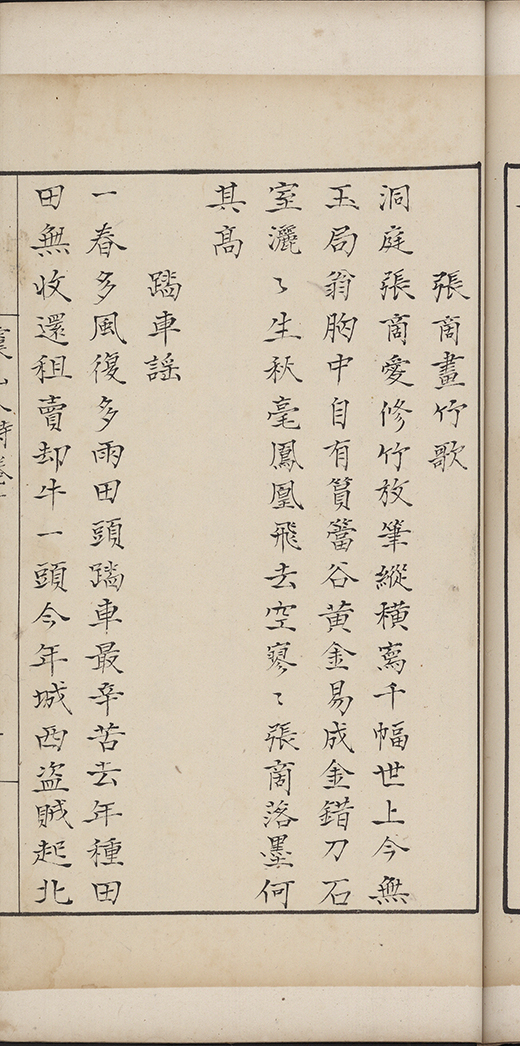 張商畫竹歌
洞庭張商愛修竹放筆縱橫寫千幅世上今無
玉局翁胸中自有篔簹谷黃金易成金錯刀石
室灑〻生秋毫鳳凰飛去空寥〻張商落墨何
其高
蹋車謡
一春多風復多雨田頭蹋車最辛苦去年種田
田無收還租賣却牛一頭今年城西盗賊起北
人詩卷